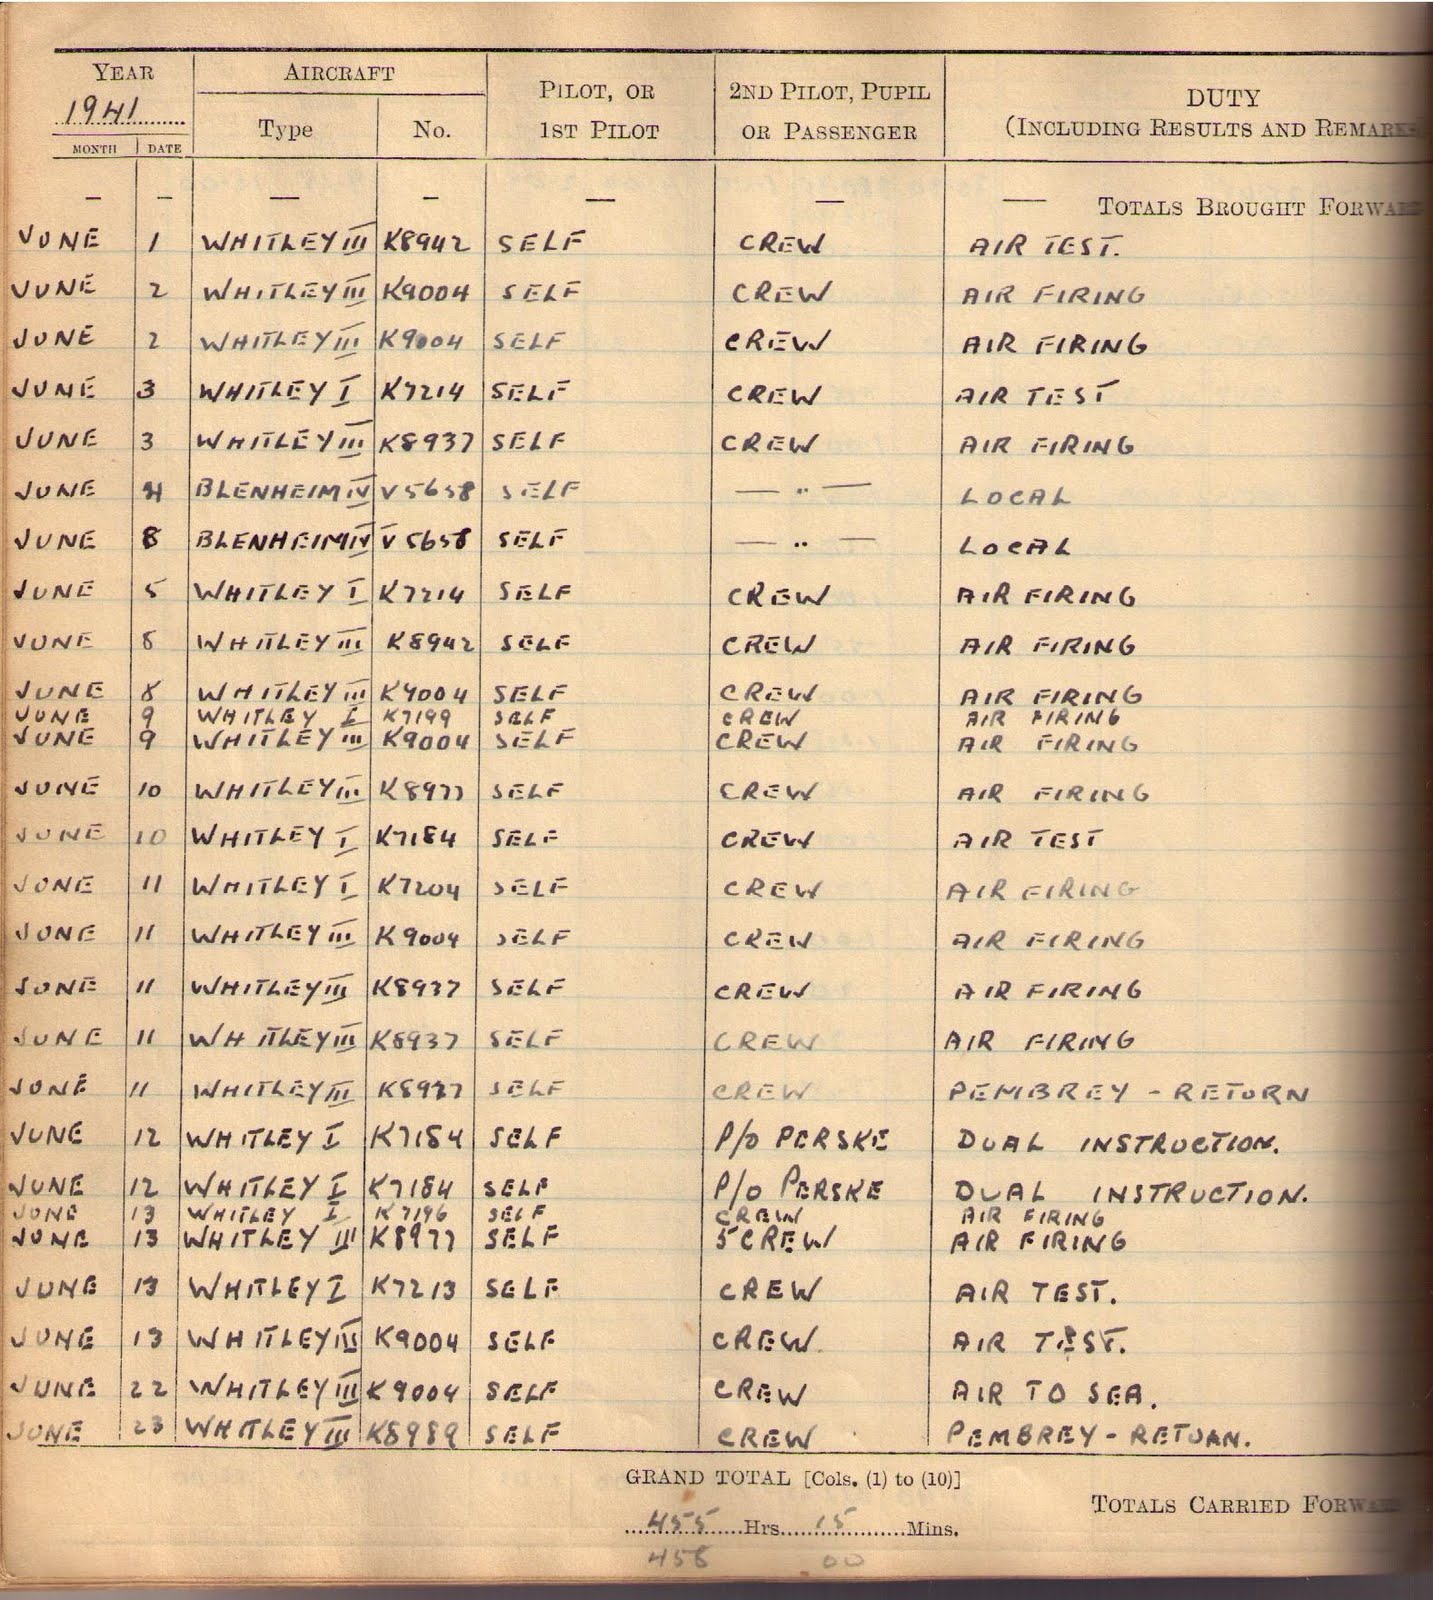 YEAR AIRCRAFT PILOT, OR 2ND PILOT, PUPIL DUTY
1941 Type No. 1ST PILOT OR PASSENGER (INCLUDING RESULTS AND REMARKS
MONTH DATE
— — — — — — — TOTALS BROUGHT FORWARD
JUNE 1 WHITLEY III K8942 SELF CREW AIR TEST.
JUNE 2 WHITLEY III K9004 SELF CREW AIR FIRING
JUNE 2 WHITLEY III K9004 SELF CREW AIR FIRING
JUNE 3 WHITLEY I K7214 SELF CREW AIR TEST
JUNE 3 WHITLEY III K8937 SELF CREW AIR FIRING
JUNE 4 BLENHEIM IV V5658 SELF — .. — LOCAL
JUNE 8 BLENHEIM IV V5658 SELF — .. — LOCAL
JUNE 5 WHITLEY I K7214 SELF CREW AIR FIRING
JUNE 8 WHITLEY III K8942 SELF CREW AIR FIRING
JUNE 8 WHITLEY III K9004 SELF CREW AIR FIRING
JUNE 9 WHITLEY I K7199 SELF CREW AIR FIRING
JUNE 9 WHITLEY III K9004 SELF CREW AIR FIRING
JUNE 10 WHITLEY III K8977 SELF CREW AIR FIRING
JUNE 10 WHITLEY I K7184 SELF CREW AIR TEST
JUNE 11 WHITLEY I K7204 SELF CREW AIR FIRING
JUNE 11 WHITLEY III K9004 SELF CREW AIR FIRING
JUNE 11 WHITLEY III K8937 SELF CREW AIR FIRING
JUNE 11 WHITLEY III K8937 SELF CREW AIR FIRING
JUNE 11 WHITLEY III K8937 SELF CREW PEMBREY - RETURN
JUNE 12 WHITLEY I K7184 SELF P/O PERSKE DUAL INSTRUCTION.
JUNE 12 WHITLEY I K7184 SELF P/O PERSKE DUAL INSTRUCTION.
JUNE 13 WHITLEY I K7196 SELF CREW AIR FIRING
JUNE 13 WHITLEY III K8977 SELF 5 CREW AIR FIRING
JUNE 13 WHITLEY I K7213 SELF CREW AIR TEST.
JUNE 13 WHITLEY III K9004 SELF CREW. AIR TEST.
JUNE 22 WHITLEY III K9004 SELF CREW AIR TO SEA.
JUNE 23 WHITLEY III K8989 SELF CREW PEMBREY - RETURN.
GRAND TOTAL [Cols. (1) to (10)]
TOTALS CARRIED FORWARD
455 Hrs. 15 Mins.
458 00